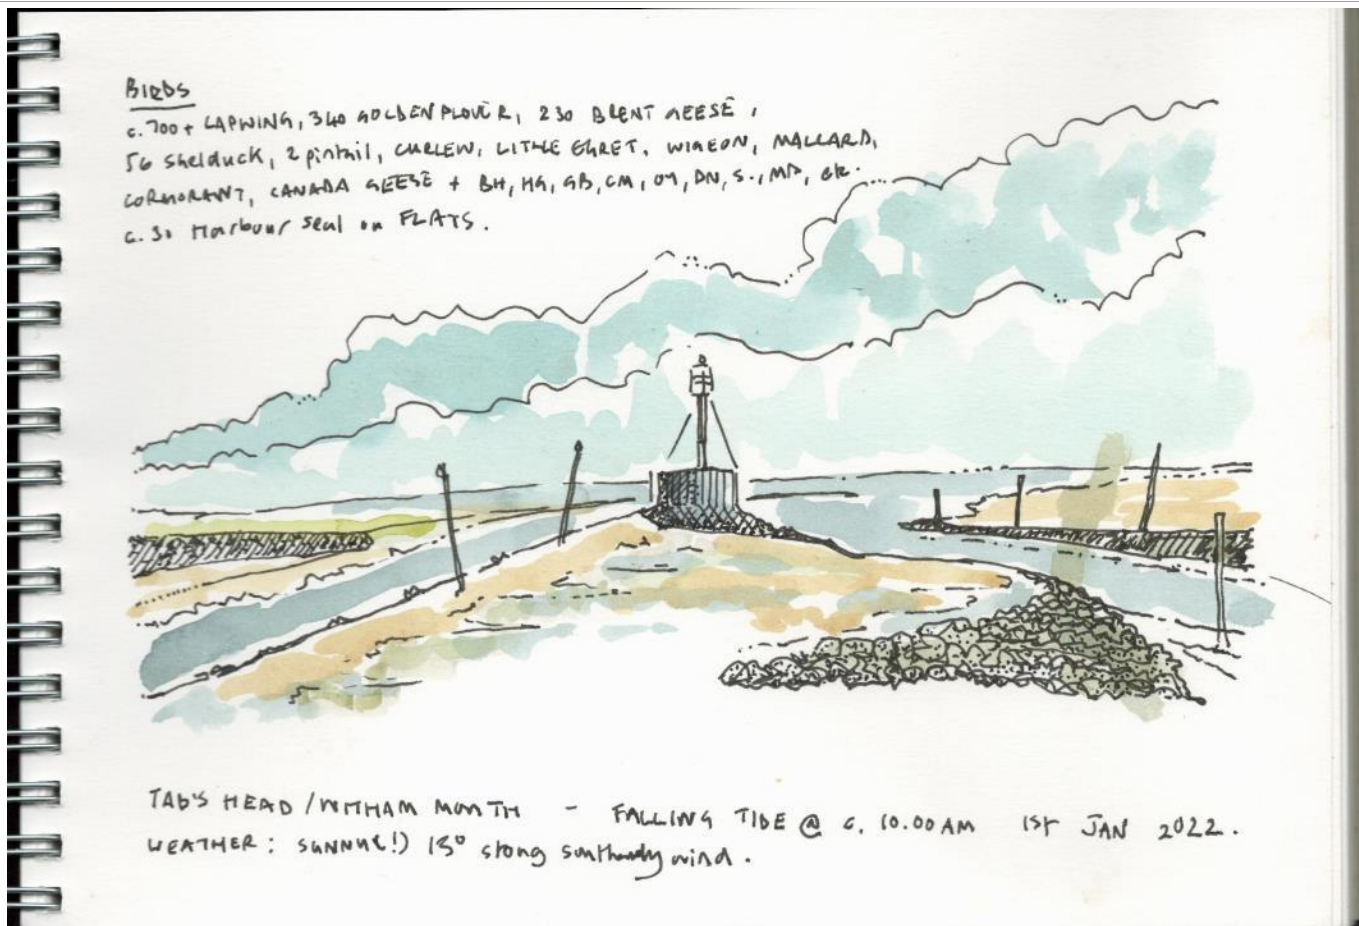 BIRDS
c. 700+ LAPWING, 340 GOLDEN PLOVER, 230 BRENT GEESE,
56 Shelduck, 2 pintail, CURLEW, LITTLE EGRET, WIGEON, MALLARD,
CORMORANT, CANADA GEESE + BH, HG, GB, CM, OY, DN, S., MP, ETC.
c. 30 Harbour Seal on FLATS.
TAB'S HEAD / WITHAM MOUTH - FALLING TIDE @ c. 10.00AM 1ST JAN 2022.
WEATHER: SUNNY(!) 15° stong southerly wind.